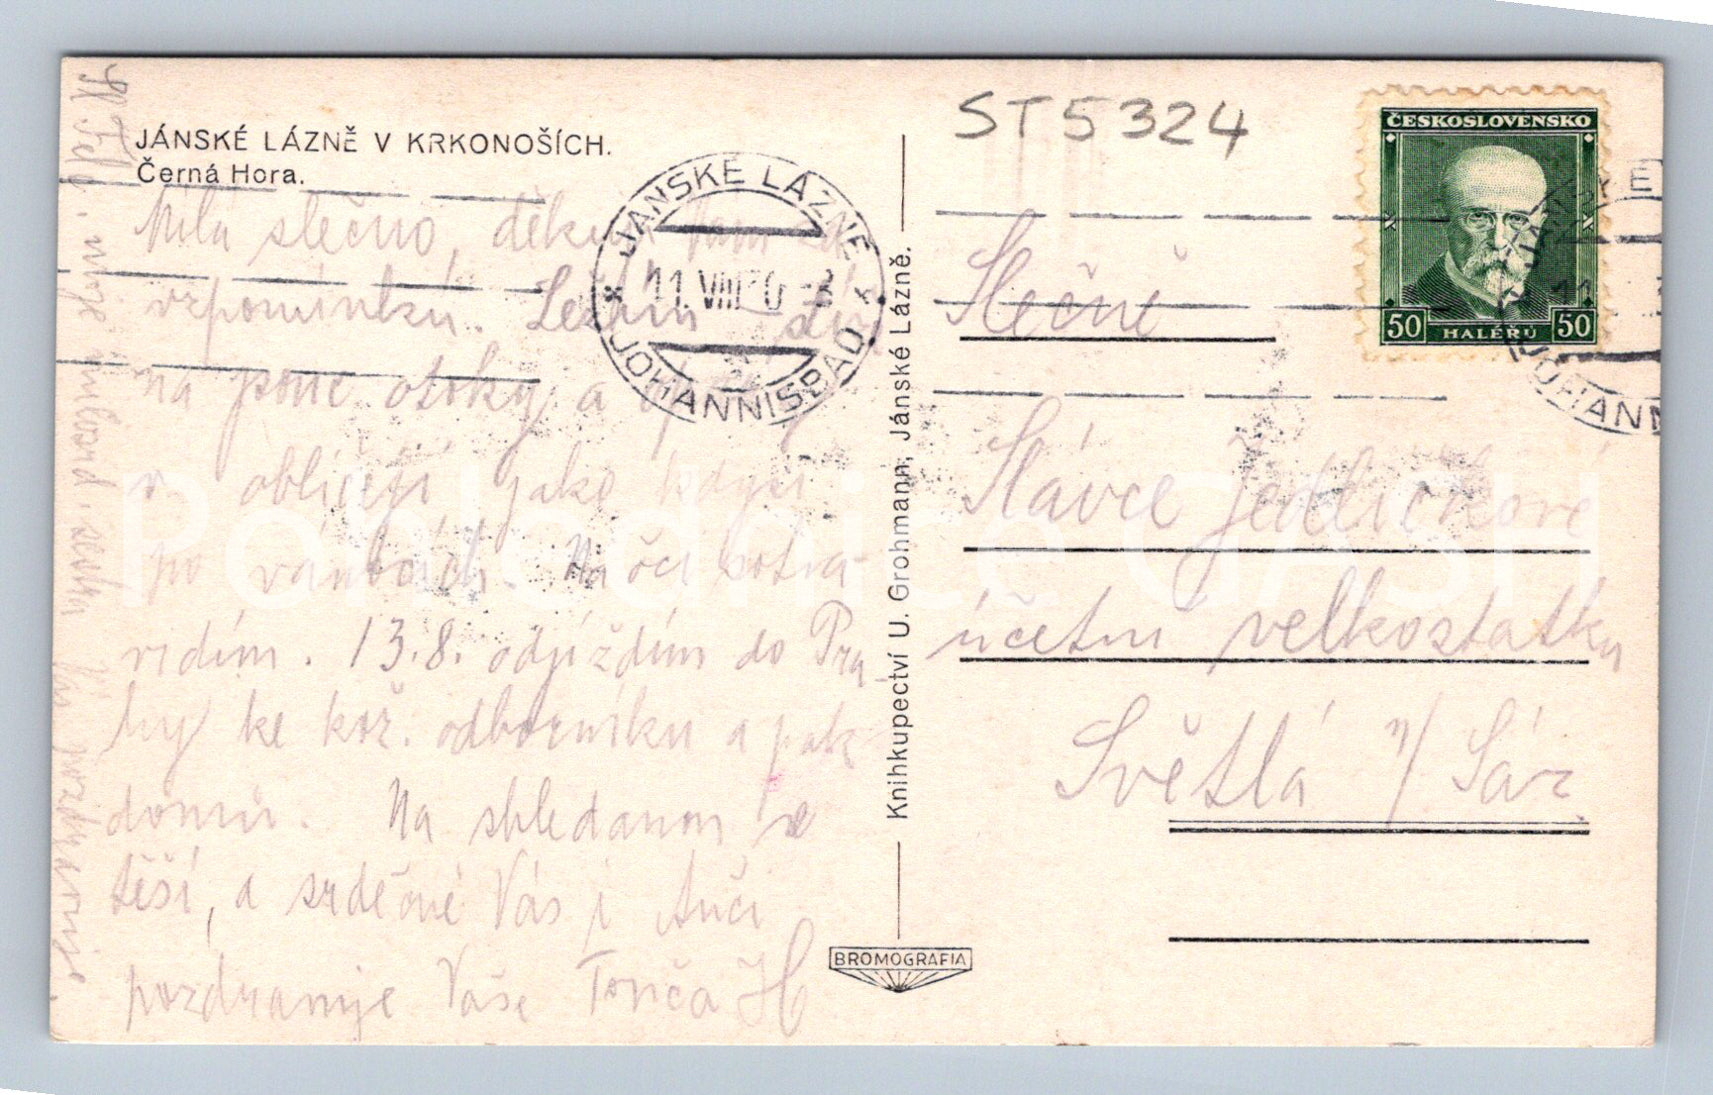 JÁNSKÉ LÁZNĚ V KRKONOŠÍCH.
Černá Hora.
Milá slečno, děkuji Vám za
vzpomínku. Ležím
na jsme otoky a
v obličeji jako kdysi
po vánocích. Na oči sotva
vidím. 13.8. odjíždím do Pra-
hy ke kož. odborníku a pak
domů. Na shledanou se
těší, a srdečně Vás i Anči
pozdravuje Vaše Tonča H
Vás pozdravuje.
JÁNSKÉ LÁZNĚ
11.VIII
JOHANNISBAD
Knihkupectví U. Grohmann, Jánské Lázně.
BROMOGRAFIA
ST5324
ČESKOSLOVENSKO
50 HALÉŘŮ 50
JOHANN
Slečně
Slávce Jedličkové
účetní velkostatku
Světlá n/ Sáz.
Pohlednice GASH